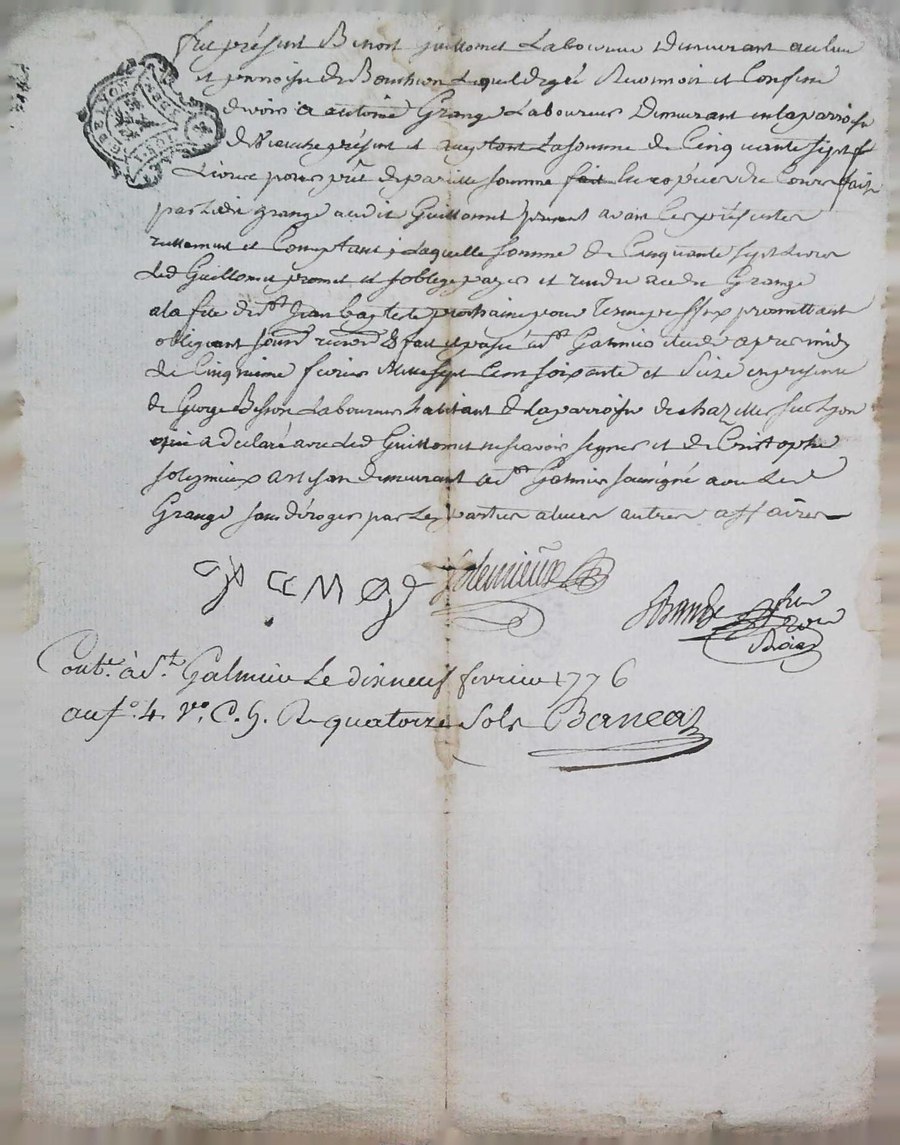 fut présent Benoit Guillomet Laboureur Demeurant au lieu
et parroisse de Lequel de gré Reconnoit et Confesse
devoir a antoine Grange Laboureur Demeurant en la parroisse
de présent et aceptant la somme de Cinquante sept
Livres pour prêt de pareille somme en espèces de Cours fait
par Ledit grange audit Guillomet avant Ces présentes
réellement et Comptant ; Laquelle somme de Cinquante sept Livres
Led Guillomet promet et soblige payer et rendre aud Grange
a la fête de st Jean baptiste prochaine pour promettant
obligeant soumd renond & fait et passé a st Galmier etude apres midy
Le Cinquieme fevrier Mille sept Cent soixante et Seize en presence
de George Besson Laboureur habitant de La parroisse de chazelles sur Lyon
qui a declaré avec led Guillomet ne scavoir signer et de Cristophe
solemieux artisan demeurant a st Galmier soussigné avec Led
Grange sans déroger par Les parties a leurs autres affaires
grange Solemieux
Conté. à st. Galmier Le dixneuf fevrier 1776
au f°. 4. v°. C. 5. R quatorze Sols Bancal